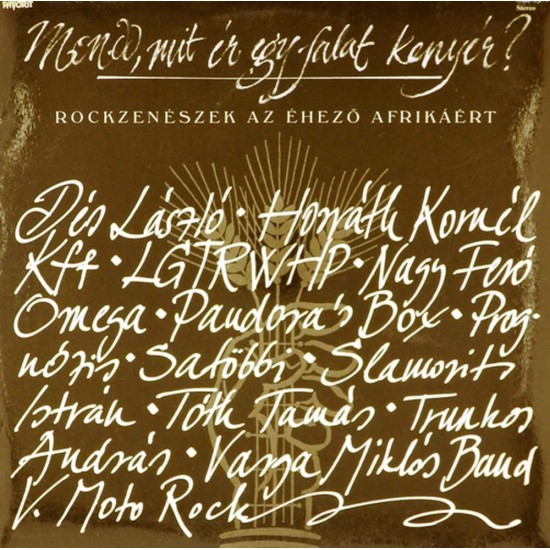 FAVORIT
Stereo
Mondd, mit ér egy falat kenyér?
ROCKZENÉSZEK AZ ÉHEZŐ AFRIKÁÉRT
Dés László • Horváth Kornél
Kft • LGTRWHP • Nagy Feró
Omega • Pandora's Box • Prog-
nózis • Satöbbi • Slamovits
István • Tóth Tamás • Trunkos
András • Varga Miklós Band
V. Moto Rock